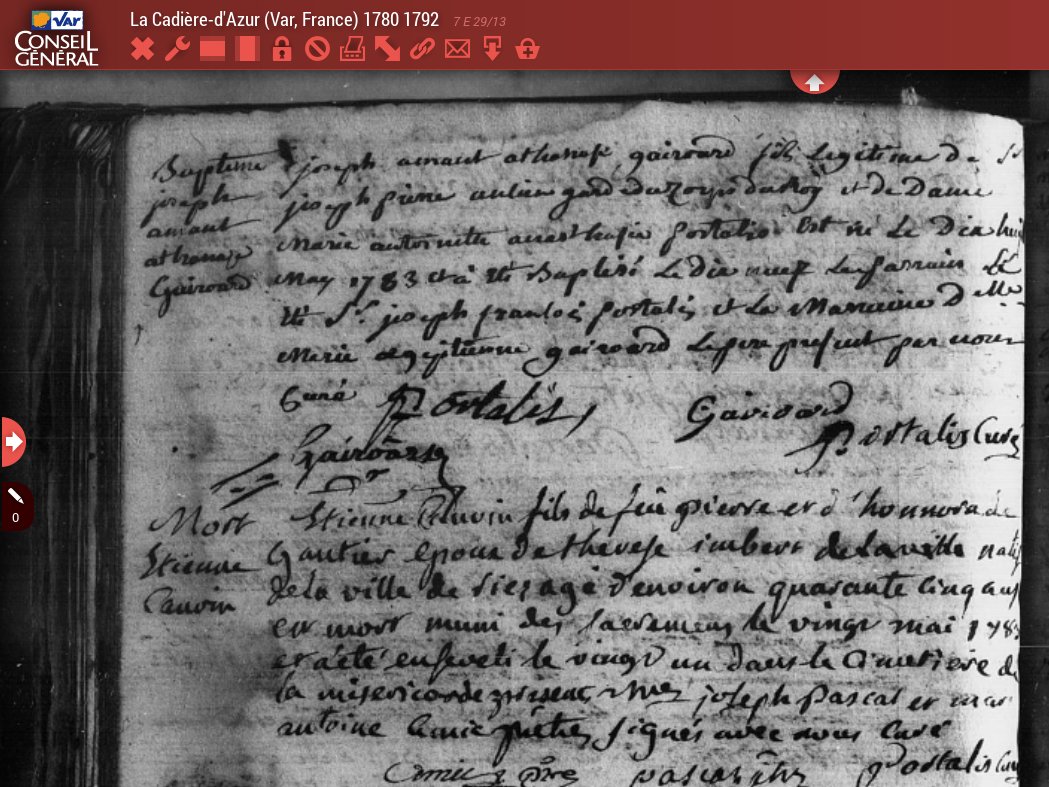 La Cadière-d'Azur (Var, France) 1780 1792 7 E 29/13
Var
CONSEIL
GÉNÉRAL
0
Baptême
joseph
amant
athanase
Gairoard
joseph amant athanase gairoard fils legitime de Sr
joseph pierre ancien garde du Corps du Roy et de Dame
Marie antoinette anasthasie portalis Est né Le Dix huit
May 1783 et a été Baptisé Le dix neuf Le parrain
été Sr. joseph françois portalis et La Marraine dlle
Marie egyptienne gairoard Le pere present par nous
Curé Portalis, Gairoard
Gairoard Portalis Curé
Mort
Etienne
Cauvin
Etienne Cauvin fils de feu pierre et d'honnorade
Gautier epoux de therese imbert de la ville natif
de la ville de riez agé d'environ quarante cinq ans
est mort muni des sacremens le vingt mai 1783
et a été enseveli le vingt un dans le Cimetiere de
la misericorde presens mres joseph pascal et mar
antoine lemie prêtres signés avec nous Curé
ptre pascal ptre Portalis Curé